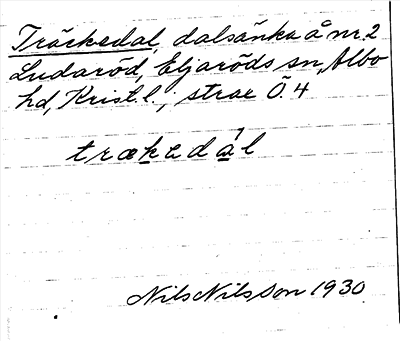 Träckedal, dalsänka å nr. 2
Ludaröd, Eljaröds sn, Albo
hd, Krist. l., strax Ö. 4
trækadál
Nils Nilsson 1930